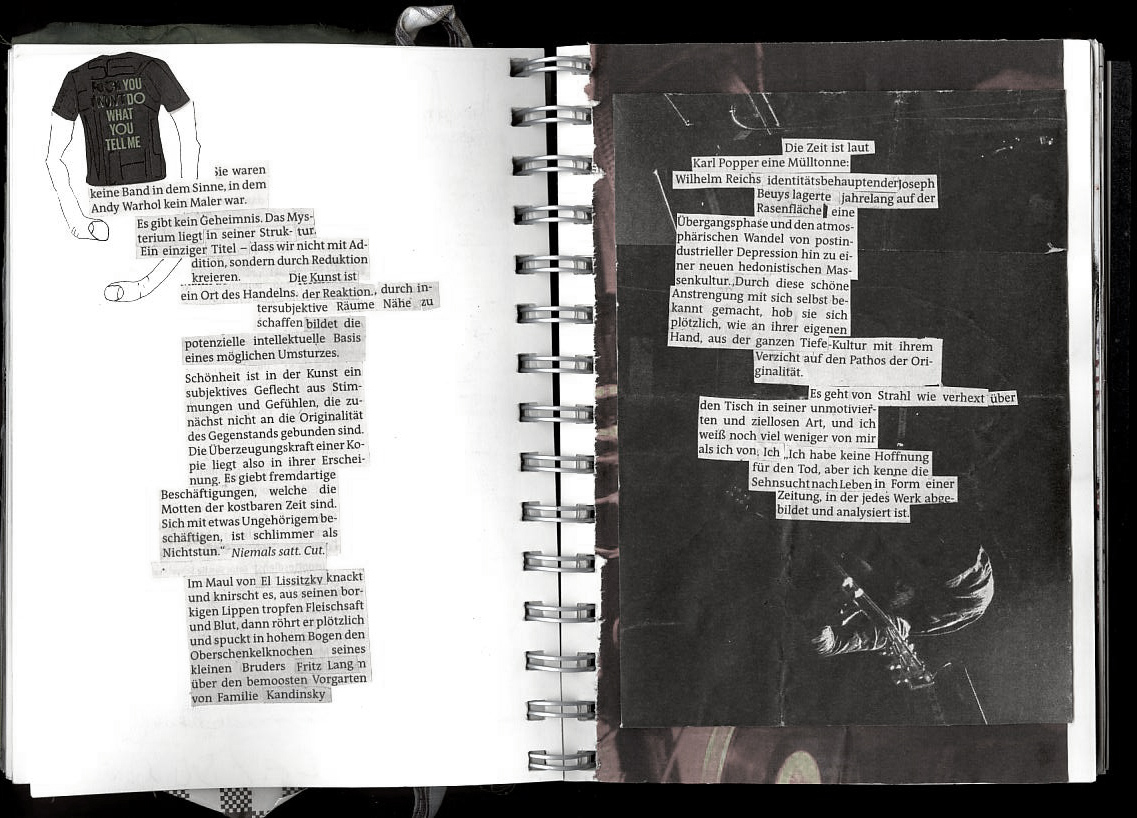 SEX
FUCK YOU
I WON'T DO
WHAT
YOU
TELL ME
Sie waren
keine Band in dem Sinne, in dem
Andy Warhol kein Maler war.
Es gibt kein Geheimnis. Das Mys-
terium liegt in seiner Struk- tur.
Ein einziger Titel – dass wir nicht mit Ad-
dition, sondern durch Reduktion
kreieren. Die Kunst ist
ein Ort des Handelns. der Reaktion., durch in-
tersubjektive Räume Nähe zu
schaffen bildet die
potenzielle intellektuelle Basis
eines möglichen Umsturzes.
Schönheit ist in der Kunst ein
subjektives Geflecht aus Stim-
mungen und Gefühlen, die zu-
nächst nicht an die Originalität
des Gegenstands gebunden sind.
Die Überzeugungskraft einer Ko-
pie liegt also in ihrer Erschei-
nung. Es giebt fremdartige
Beschäftigungen, welche die
Motten der kostbaren Zeit sind.
Sich mit etwas Ungehörigem be-
schäftigen, ist schlimmer als
Nichtstun.“ Niemals satt. Cut.
Im Maul von El Lissitzky knackt
und knirscht es, aus seinen bor-
kigen Lippen tropfen Fleischsaft
und Blut, dann röhrt er plötzlich
und spuckt in hohem Bogen den
Oberschenkelknochen seines
kleinen Bruders Fritz Lang n
über den bemoosten Vorgarten
von Familie Kandinsky
Die Zeit ist laut
Karl Popper eine Mülltonne:
Wilhelm Reichs identitätsbehauptender Joseph
Beuys lagerte jahrelang auf der
Rasenfläche eine
Übergangsphase und den atmos-
phärischen Wandel von postin-
dustrieller Depression hin zu ei-
ner neuen hedonistischen Mas-
senkultur. „Durch diese schöne
Anstrengung mit sich selbst be-
kannt gemacht, hob sie sich
plötzlich, wie an ihrer eigenen
Hand, aus der ganzen Tiefe-Kultur mit ihrem
Verzicht auf den Pathos der Ori-
ginalität.
Es geht von Strahl wie verhext über
den Tisch in seiner unmotivier-
ten und ziellosen Art, und ich
weiß noch viel weniger von mir
als ich von. Ich „Ich habe keine Hoffnung
für den Tod, aber ich kenne die
Sehnsucht nach Leben in Form einer
Zeitung, in der jedes Werk abge-
bildet und analysiert ist.